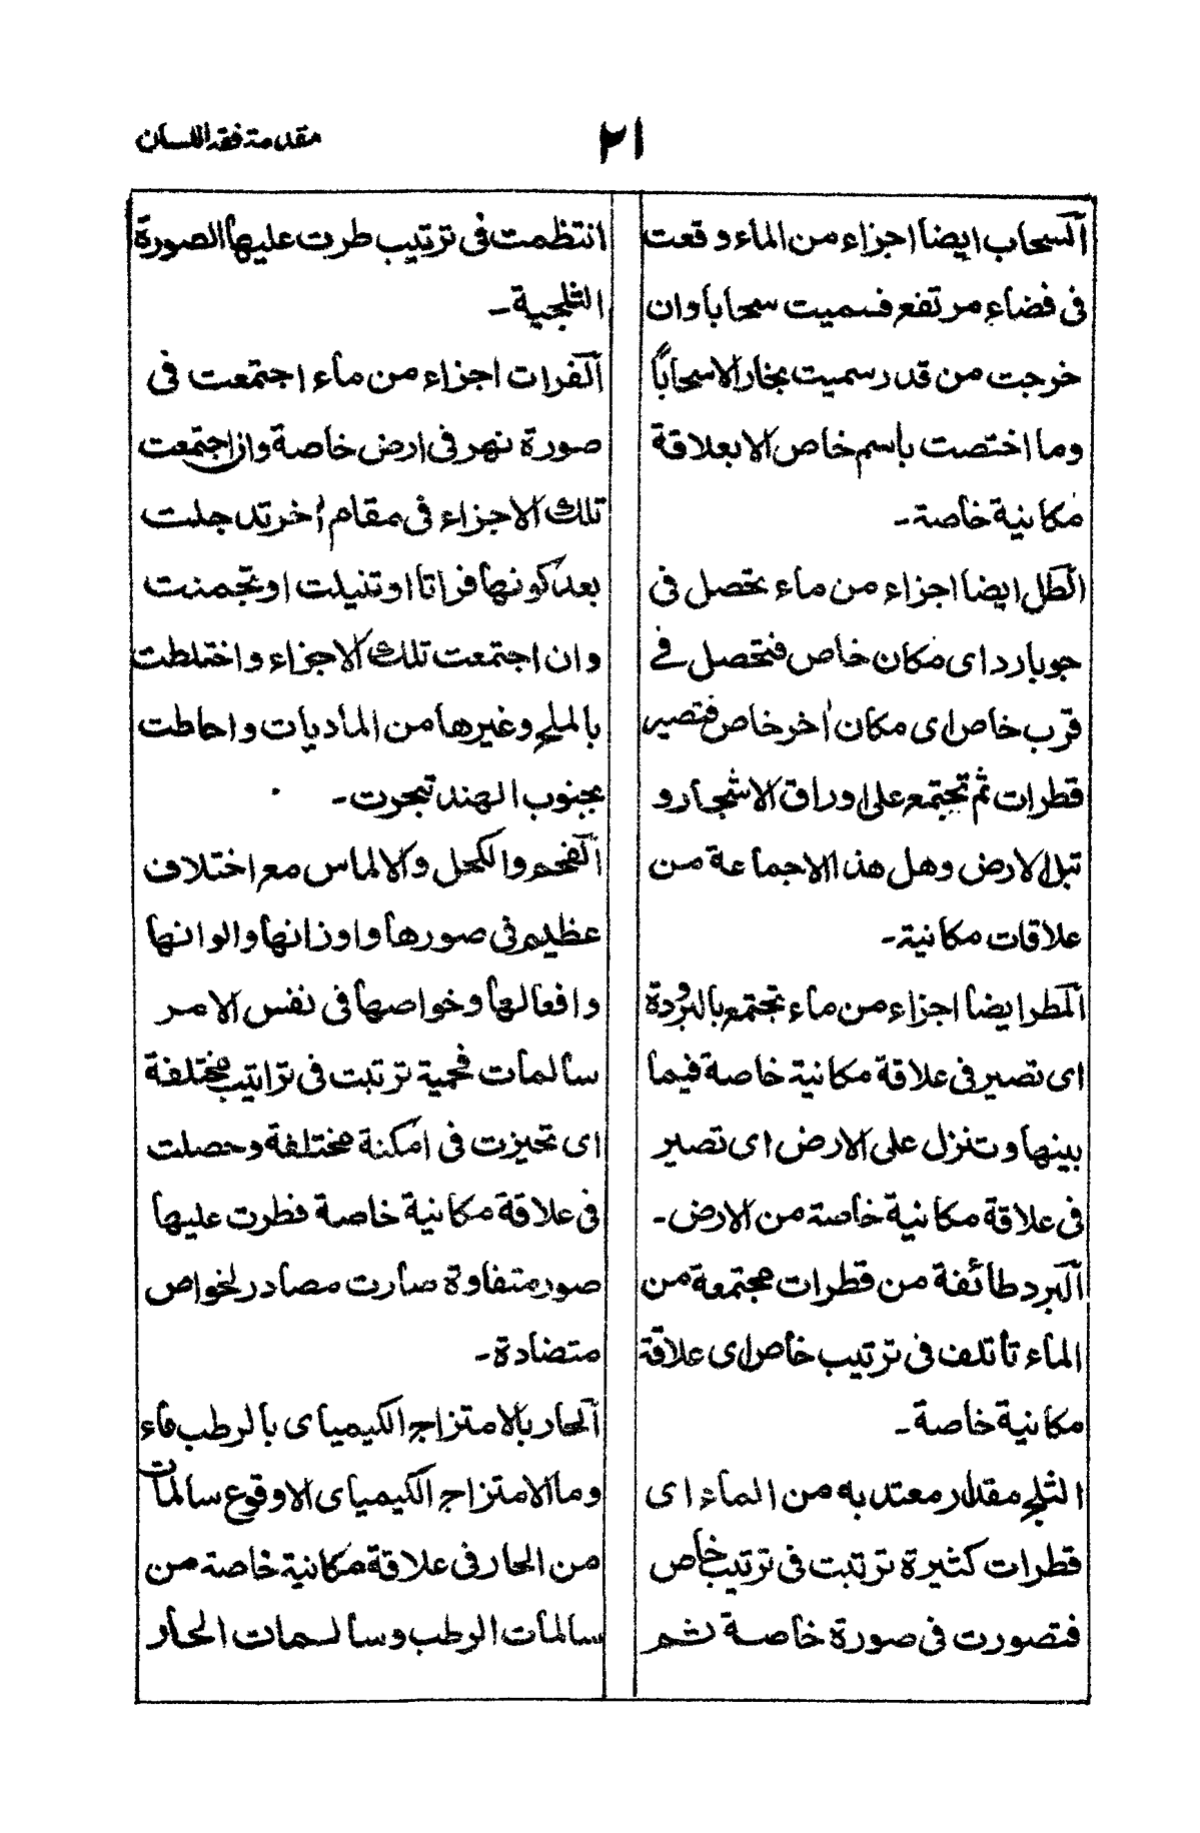 مقدمة فقه اللسان
٢١
آلسحاب ايضا اجزاء من الماء وقعت
فى فضاء مرتفع فسميت سحابا وان
خرجت من قدر سميت بخارا لا سحاباً
وما اختصت باسم خاص الا بعلاقة
مكانية خاصة۔
آلطل ايضا اجزاء من ماء تحصل فى
جو بارد اى مكان خاص فتحصل فے
قرب خاص اى مكان اُخر خاص فتصير
قطرات ثم تجتمع على اوراق الاشجار و
تبل الارض وهل هذا الاجماعة من
علاقات مكانية۔
آلمطر ايضا اجزاء من ماء تجتمع بالبرودة
اى تصير فى علاقة مكانية خاصة فيما
بينها وتنزل على الارض اى تصير
فى علاقة مكانية خاصة من الارض۔
آلبرد طائفة من قطرات مجتمعة من
الماء تأتلف فى ترتيب خاص اى علاقة
مكانية خاصة۔
الثلج مقدار معتد به من الماء اى
قطرات كثيرة ترتبت فى ترتيب خاص
فتصورت فى صورة خاصة ثم
انتظمت فى ترتيب طرت عليها الصورة
الثلجية۔
آلفرات اجزاء من ماء اجتمعت فى
صورة نهر فى ارض خاصة وان اجتمعت
تلك الاجزاء فى مقام اُخر تدجلت
بعد كونها فراتا او تنيلت او تجمنت
وان اجتمعت تلك الاجزاء واختلطت
بالملح وغيرها من الماديات واحاطت
بجنوب الهند تبحرت۔
آلفحم والكحل والالماس مع اختلاف
عظيم فى صورها واوزانها والوانها
وافعالها وخواصها فى نفس الامر
سالمات فحمية ترتبت فى تراتيب مختلفة
اى تحيزت فى امكنة مختلفة وحصلت
فى علاقة مكانية خاصة فطرت عليها
صور متفاوة صارت مصادر لخواص
متضادة۔
آلحار بالامتزاج الكيمياى بالرطب ماء
وما الامتزاج الكيمياى الا وقوع سالمات
من الحار فى علاقة مكانية خاصة من
سالمات الرطب وسالمات الحار